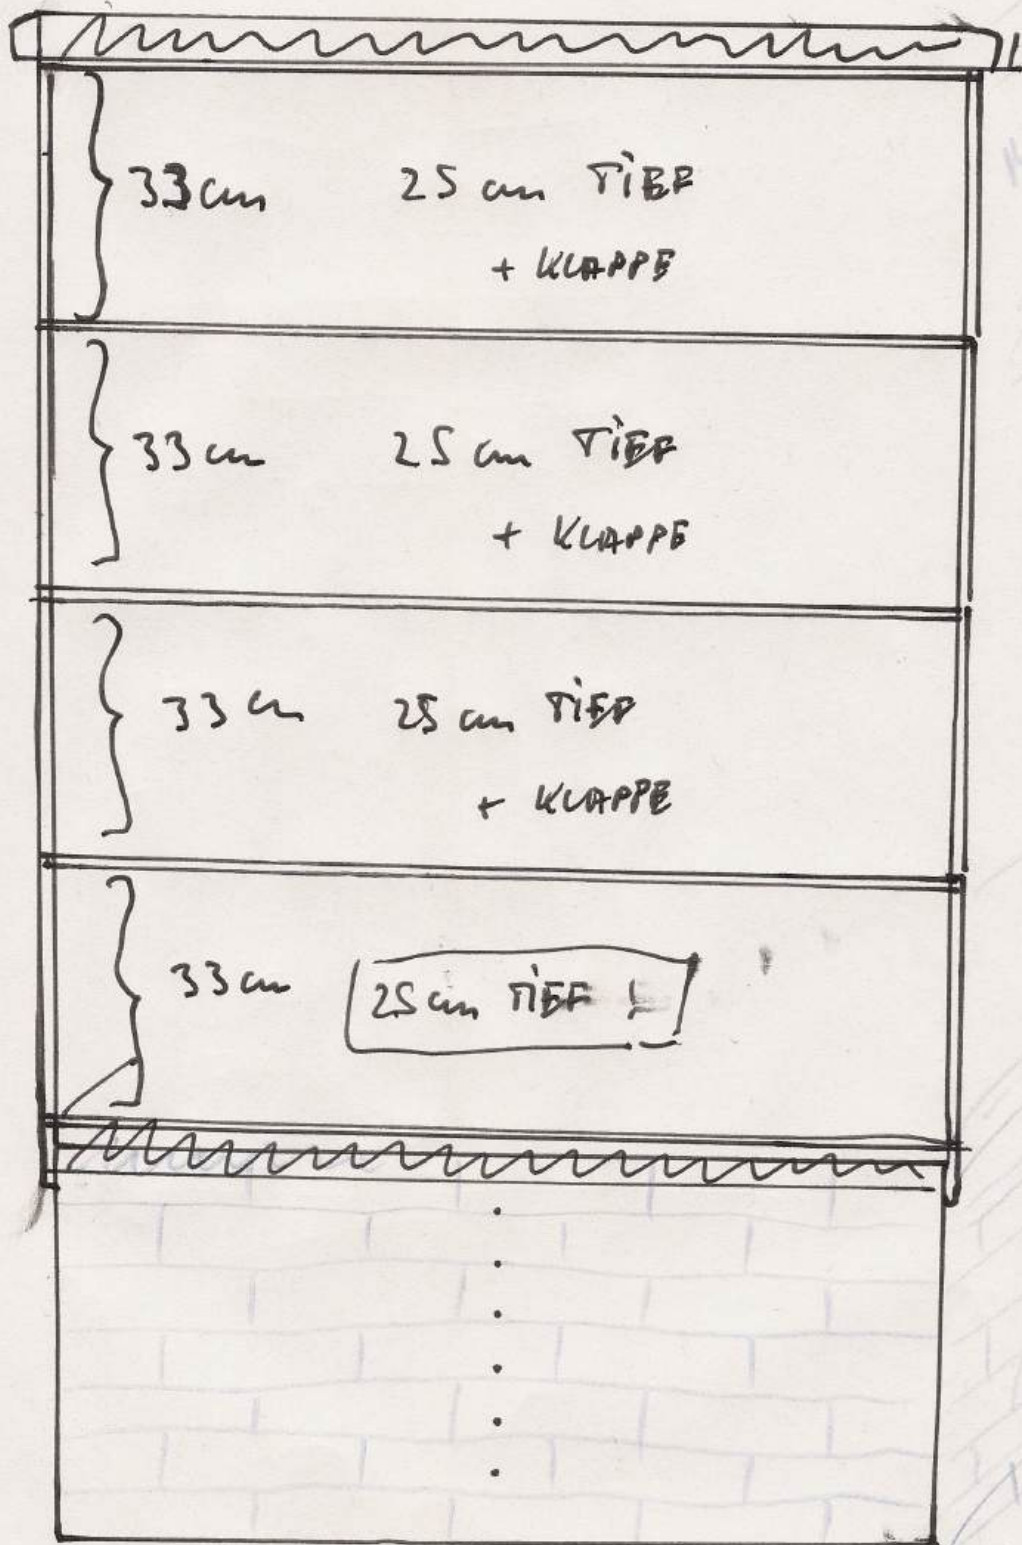 33 cm 25 cm TiEF
+ KLAPPE
33 cm 25 cm TiEF
+ KLAPPE
33 cm 25 cm TiEF
+ KLAPPE
33 cm 25 cm TiEF !